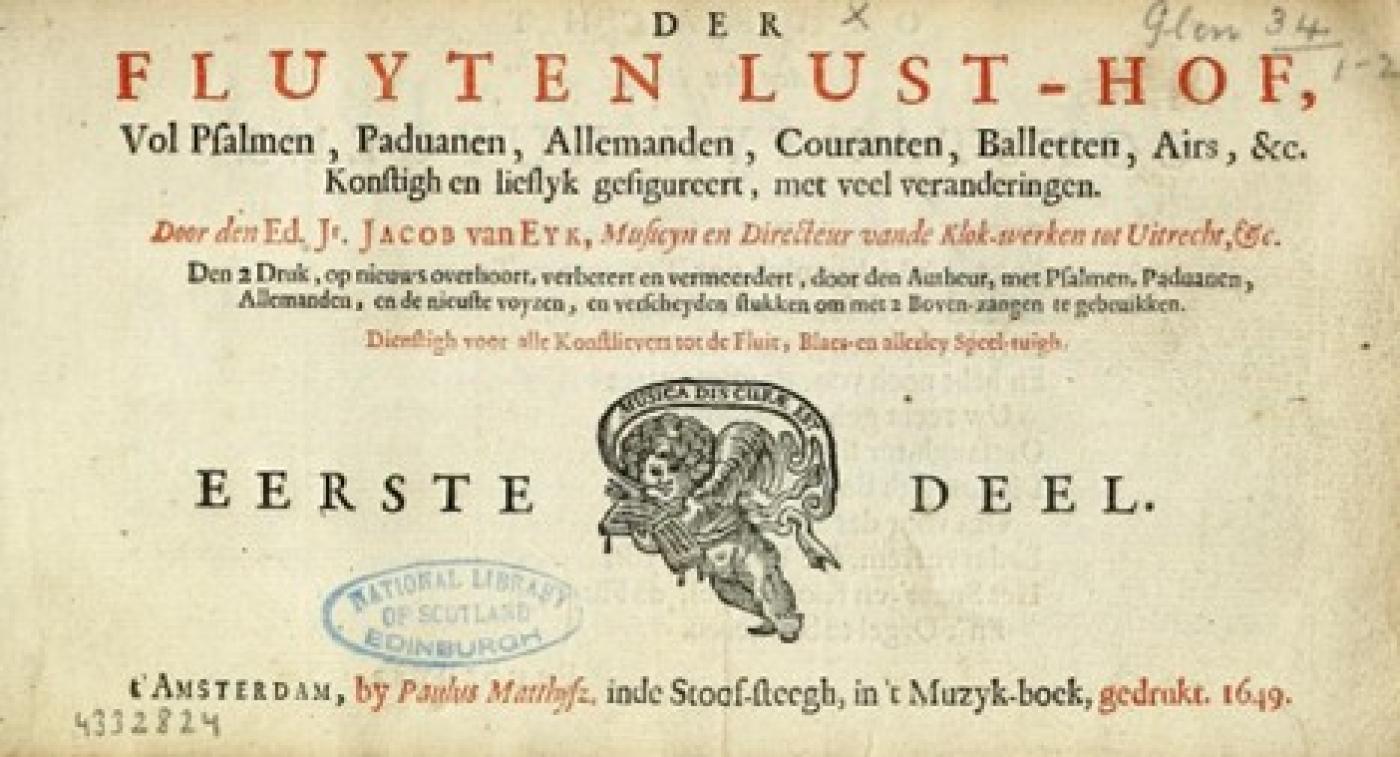 DER
x
Glen 34
1-2
FLUYTEN LUST-HOF,
Vol Psalmen, Paduanen, Allemanden, Couranten, Balletten, Airs, &c.
Konstigh en lieflyk gefigureert, met veel veranderingen.
Door den Ed. Jr. JACOB van EYK, Musicyn en Directeur vande Klok-werken tot Uitrecht, &c.
Den 2 Druk, op nieuws overhoort, verbetert en vermeerdert, door den Autheur, met Psalmen, Paduanen,
Allemanden, en de nieuste voyzen, en verscheyden stukken om met 2 Boven-zangen te gebruikken.
Dienstigh voor alle Konstlievers tot de Fluit, Blaes-en allerley Speel-tuigh.
MUSICA DIS CURÆ EST
EERSTE DEEL.
NATIONAL LIBRARY
OF SCOTLAND
EDINBURGH
t'AMSTERDAM, by Paulus Matthysz. inde Stoof-steegh, in 't Muzyk-boek, gedrukt. 1649.
4332824